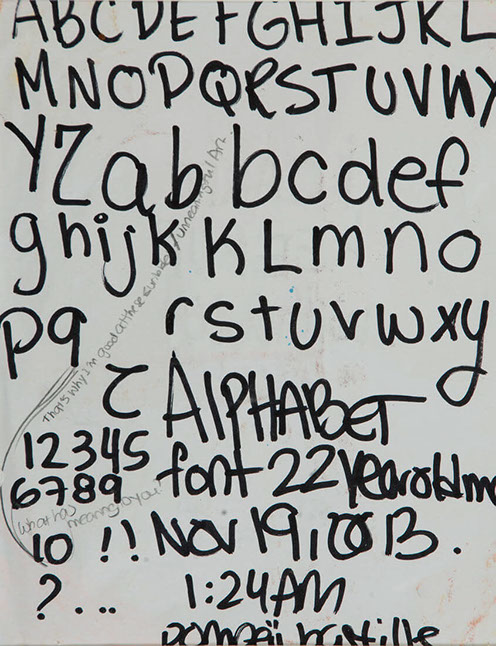 ABCDEFGHIJKL
MNOPQRSTUVW
YZab bcdef
ghijk KLmno
pq rstuvwxy
z ALPHABET
12345 font 22 year old m
6789
10 !! Nov 19, 2013.
? ... 1:24AM
pompeii bastille
That's why I'm good at these Art.
What has
meaning to you?